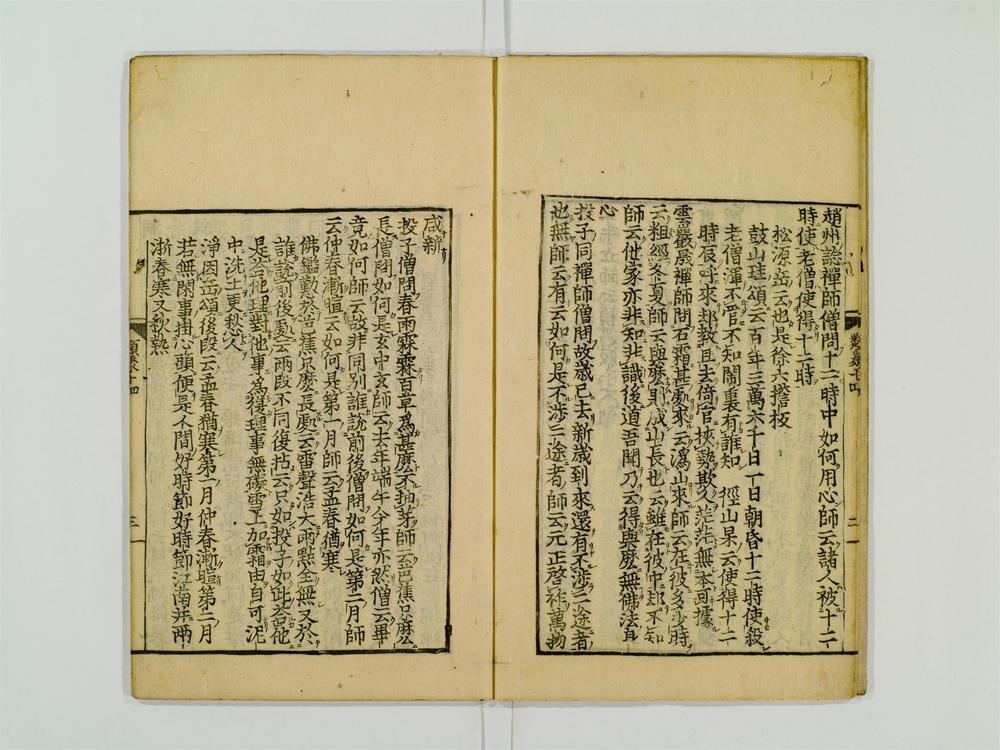 趙州諗禪師僧問十二時中如何用心師云諸人被十二
時使老僧使得十二時
松源岳云也是徐六擔板
鼓山珪頌云百年三萬六千日一日朝昏十二時使殺
老僧渾不管不知閙裏有誰知　徑山杲云使得十二
時辰呼來却教且去倚官挾勢欺久茫茫無本可據
雲巖晟禪師問石霜甚麼處來云潙山來師云在彼多少時
云粗經冬夏師云與麼則成山長也云雖在彼中却不知
師云他家亦非知非識後道吾聞乃云得與麼無佛法身
心
投子同禪師僧問故歲已去新歲到來還有不涉二途者
也無師云有云如何是不涉二途者師云元正啓祚萬物
咸新
投子僧問春雨霖霖百草爲甚麼不抽芽師云芭蕉只麻么
長僧問如何是玄中玄師云去年端午今年亦然僧云畢
竟如何師云故非同別誰說前後僧問如何是第二月師
云仲春漸暄云如何是第一月師云孟春猶寒
佛鑑懃答芭蕉只麼長處云雷聲浩大雨點全無又於
誰說前後處云兩段不同復拈云只如投子如此答他
是答他理對他事爲復理事無礙雪上加霜由自可泥
中洗土更愁人
淨因岳頌後段云孟春猶寒第一月仲春漸暄第二月
若無閑事掛心頭便是人間好時節好時節江南并兩
浙春寒又秋熱
三